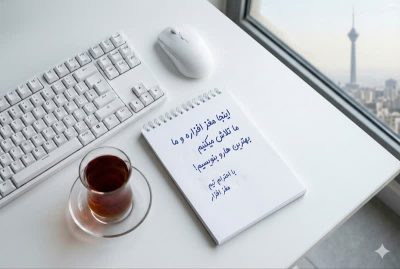 اینجا مغز افزاره و ما
ما تلاش میکنیم
بهترین هارو بنویسیم!
با احترام تیم
مغز افزار